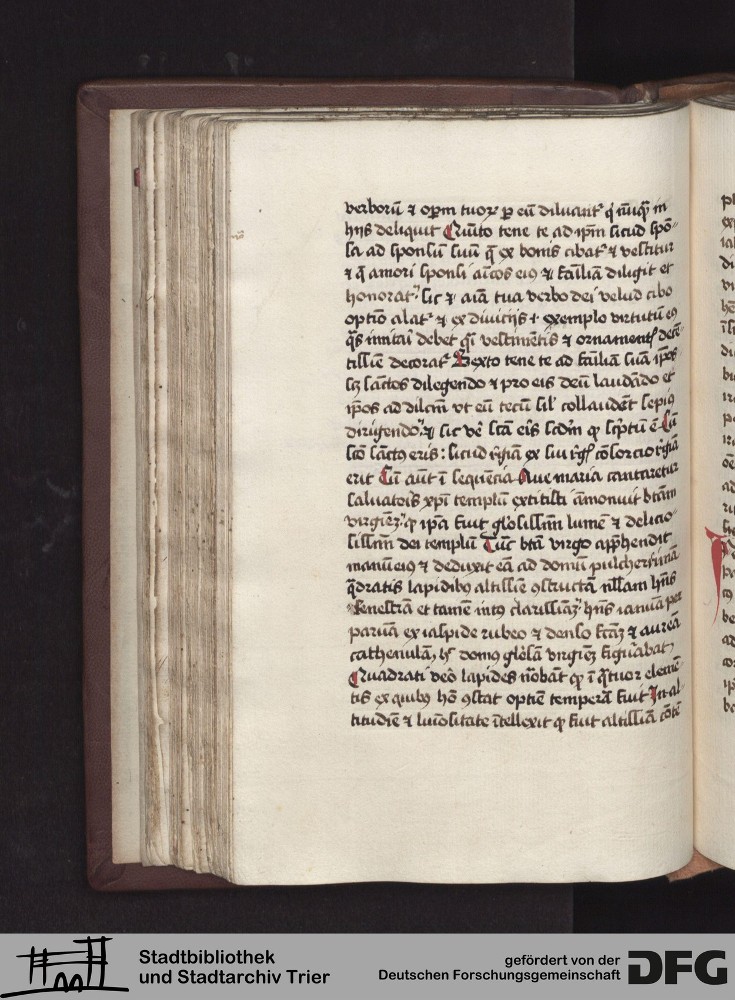 verborū ⁊ opm tuoꝝ p eū diluant᷑ q̇ nūq̄ in
hijs deliquit Quīto tene te ad ip̄m sicud spō-
sa ad sponsū suū q̄ ex bonis cibat᷑ ⁊ vestitur
⁊ q̄ amori sponsi eiꝯ ⁊ fāiliā diligit et
honorat᷑ sic ⁊ aīa tua verbo dei velud cibo
optīo alat᷑ ⁊ ex diuicijs .i. exemplo virtutū eiꝯ
q̄s imitaī debet q̄i vestimētis ⁊ ornamentꝭ decē-
tissīe decorat᷑ Sexto tene te ad fāiliā suā ip̄os
sꝫ sāctos dilegendo ⁊ pro eis deū laudādo et
ip̄os ad dilcm̄ vt eū tecū sil' collaudēt sepiꝯ
dirigendo ⁊ sic ve᷑ scā eīs scdm̄ ꝙ scptū ē Cū
scō sāctꝯ eris : sicud rgīa ex sui rgꝭ cōsorcio rgīa
erit Cū aūt ī sequēcia Aue maria cantaretur
saluatoīs xp̄i templū extitisti āmonuit btām
virgīeꝫ ꝙ ip̄a fuit glosissm̄ lumē ⁊ delicio-
sissm̄ dei templū Tūc btā virgo app̄hendit
manū eiꝯ ⁊ deduxit eā ad domū pulcherrimā
q̄dratis lapidibꝯ altissīe ꝯstructā nllam hn̄s
fenestrā et tamē intꝯ clarissīaꝫ hn̄s ianuā per
paruā ex iaspide rubeo ⁊ denso fcāꝫ ⁊ aureā
cathenulā, hꝭ domꝯ glosā virgīeꝫ figurabat
Quadrati veo᷑ lapides nōbāt ꝙ ī q̄tuor elemē-
tis ex quibꝯ hō ꝯstat optīe temperā fuit In al-
titudīe ⁊ luīositate ītellexit ꝙ fuit altissīa cōtē
Stadtbibliothek
und Stadtarchiv Trier
gefördert von der
Deutschen Forschungsgemeinschaft
DFG